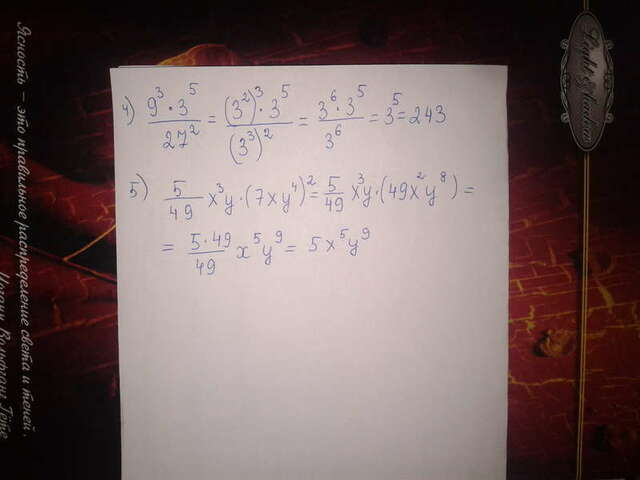 4) 9³·3⁵/27² = (3²)³·3⁵/(3³)² = 3⁶·3⁵/3⁶ = 3⁵ = 243
5) 5/49 x³y·(7xy⁴)² = 5/49 x³y·(49x²y⁸) =
= 5·49/49 x⁵y⁹ = 5x⁵y⁹
Ясность – это правильное распределение света и теней.
Иоганн Вольфганг Гёте
Light &